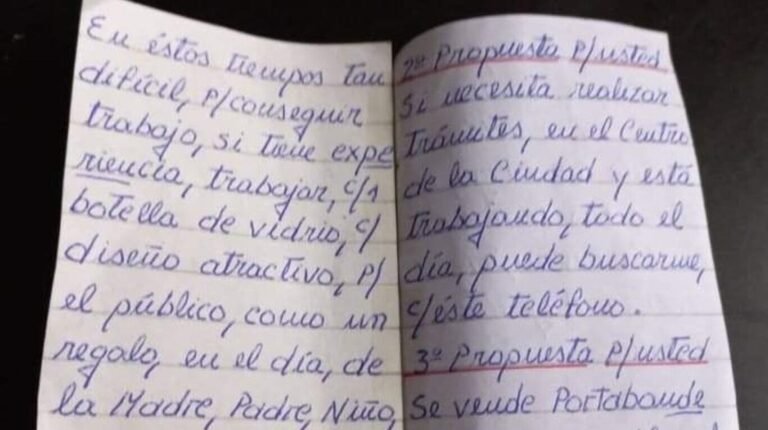 En éstos tiempos tan
difícil, p/conseguir
trabajo, si tiene expe
riencia, trabajar, c/1
botella de vidrio, c/
diseño atractivo, p/
el público, como un
regalo, en el día, de
la Madre, Padre, Niño,
2ª Propuesta p/usted
Si necesita realizar
trámites, en el Centro
de la Ciudad y está
trabajando, todo el
día, puede buscarme,
c/éste teléfono.
3ª Propuesta p/usted
Se vende Portabande